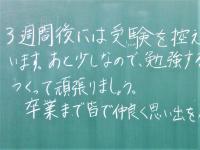 3週間後には受験を控え
います。あと少しなので、勉強する
つくって頑張りましょう。
卒業まで皆で仲良く思い出を